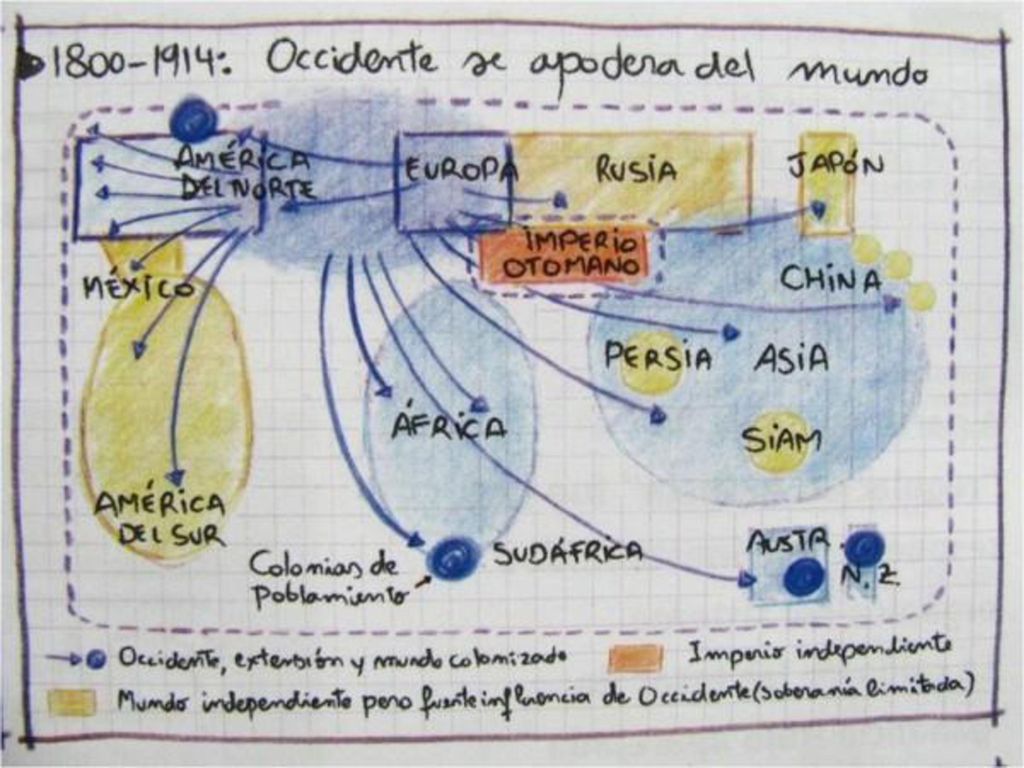 1800-1914: Occidente se apodera del mundo
AMÉRICA
DEL NORTE
EUROPA
RUSIA
JAPÓN
IMPERIO
OTOMANO
MÉXICO
CHINA
PERSIA
ASIA
ÁFRICA
SIAM
AMÉRICA
DEL SUR
Colonias de
Poblamiento
SUDÁFRICA
AUSTR.
N.Z.
Occidente, extensión y mundo colonizado
Imperio independiente
Mundo independiente pero fuente influencia de Occidente (soberanía limitada)